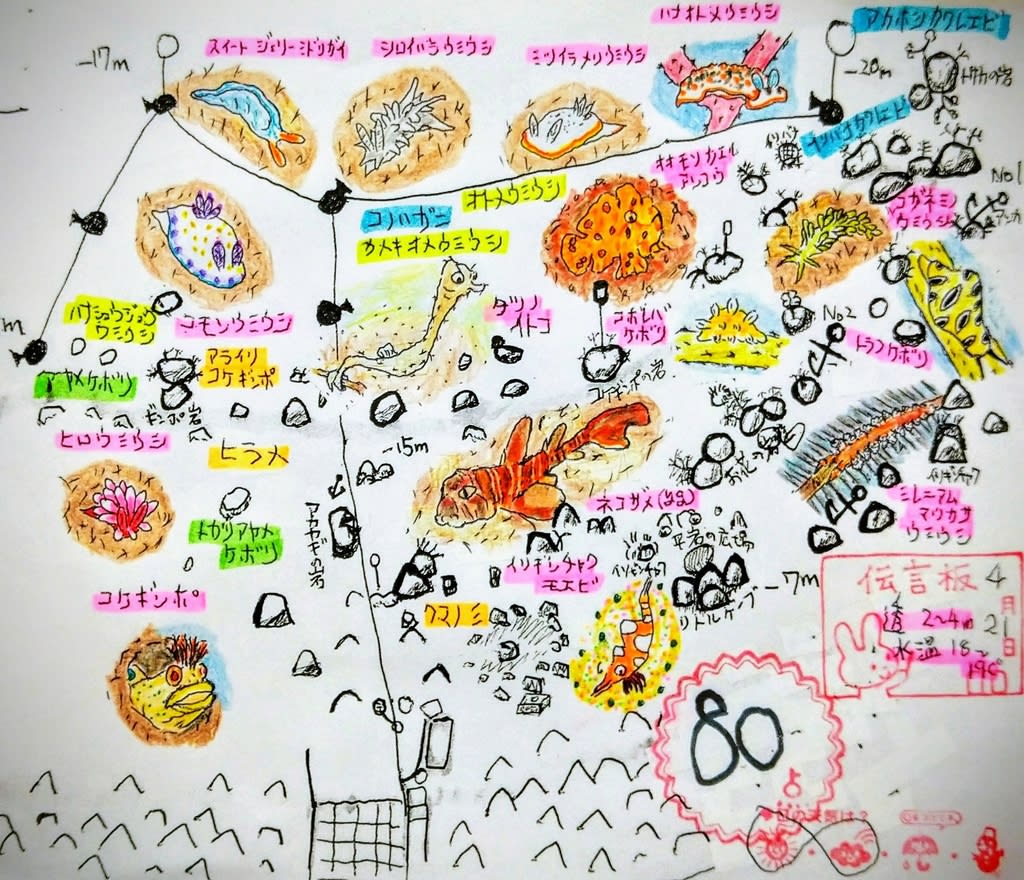 ハナオトメウミウシ
アカホシカクレエビ
スイートジェリーミドリガイ
シロイバラウミウシ
ミツイラメリウミウシ
-17m
-20m
トサカの岩
イソバナカクレエビ
イソバナ
オオモンカエル
アンコウ
No1
オトメウミウシ
コノハガニ
カメキオトメウミウシ
コガネミノ
ウミウシ
ハクセンウミウシ
コモンウミウシ
ダツノ
イトコ
コボレバ
ケボリ
No2
トラフケボリ
アヤメケボリ
アライソ
コケギンポ
コケギンポの岩
ギンポ岩
ヒロウミウシ
ヒラメ
-15m
アカヤギの岩
ネコザメ(yg)
イソギンチャク
ミレニアム
マツカサ
ウミウシ
トガリアヤメ
ケボリ
平岩の広場
イソギンチャク
モエビ
イソギンチャク
-7m
コケギンポ
クマノミ
リトルケーブ
伝言板
4月21日
透 2~4m
水温 18~
19℃
80
点